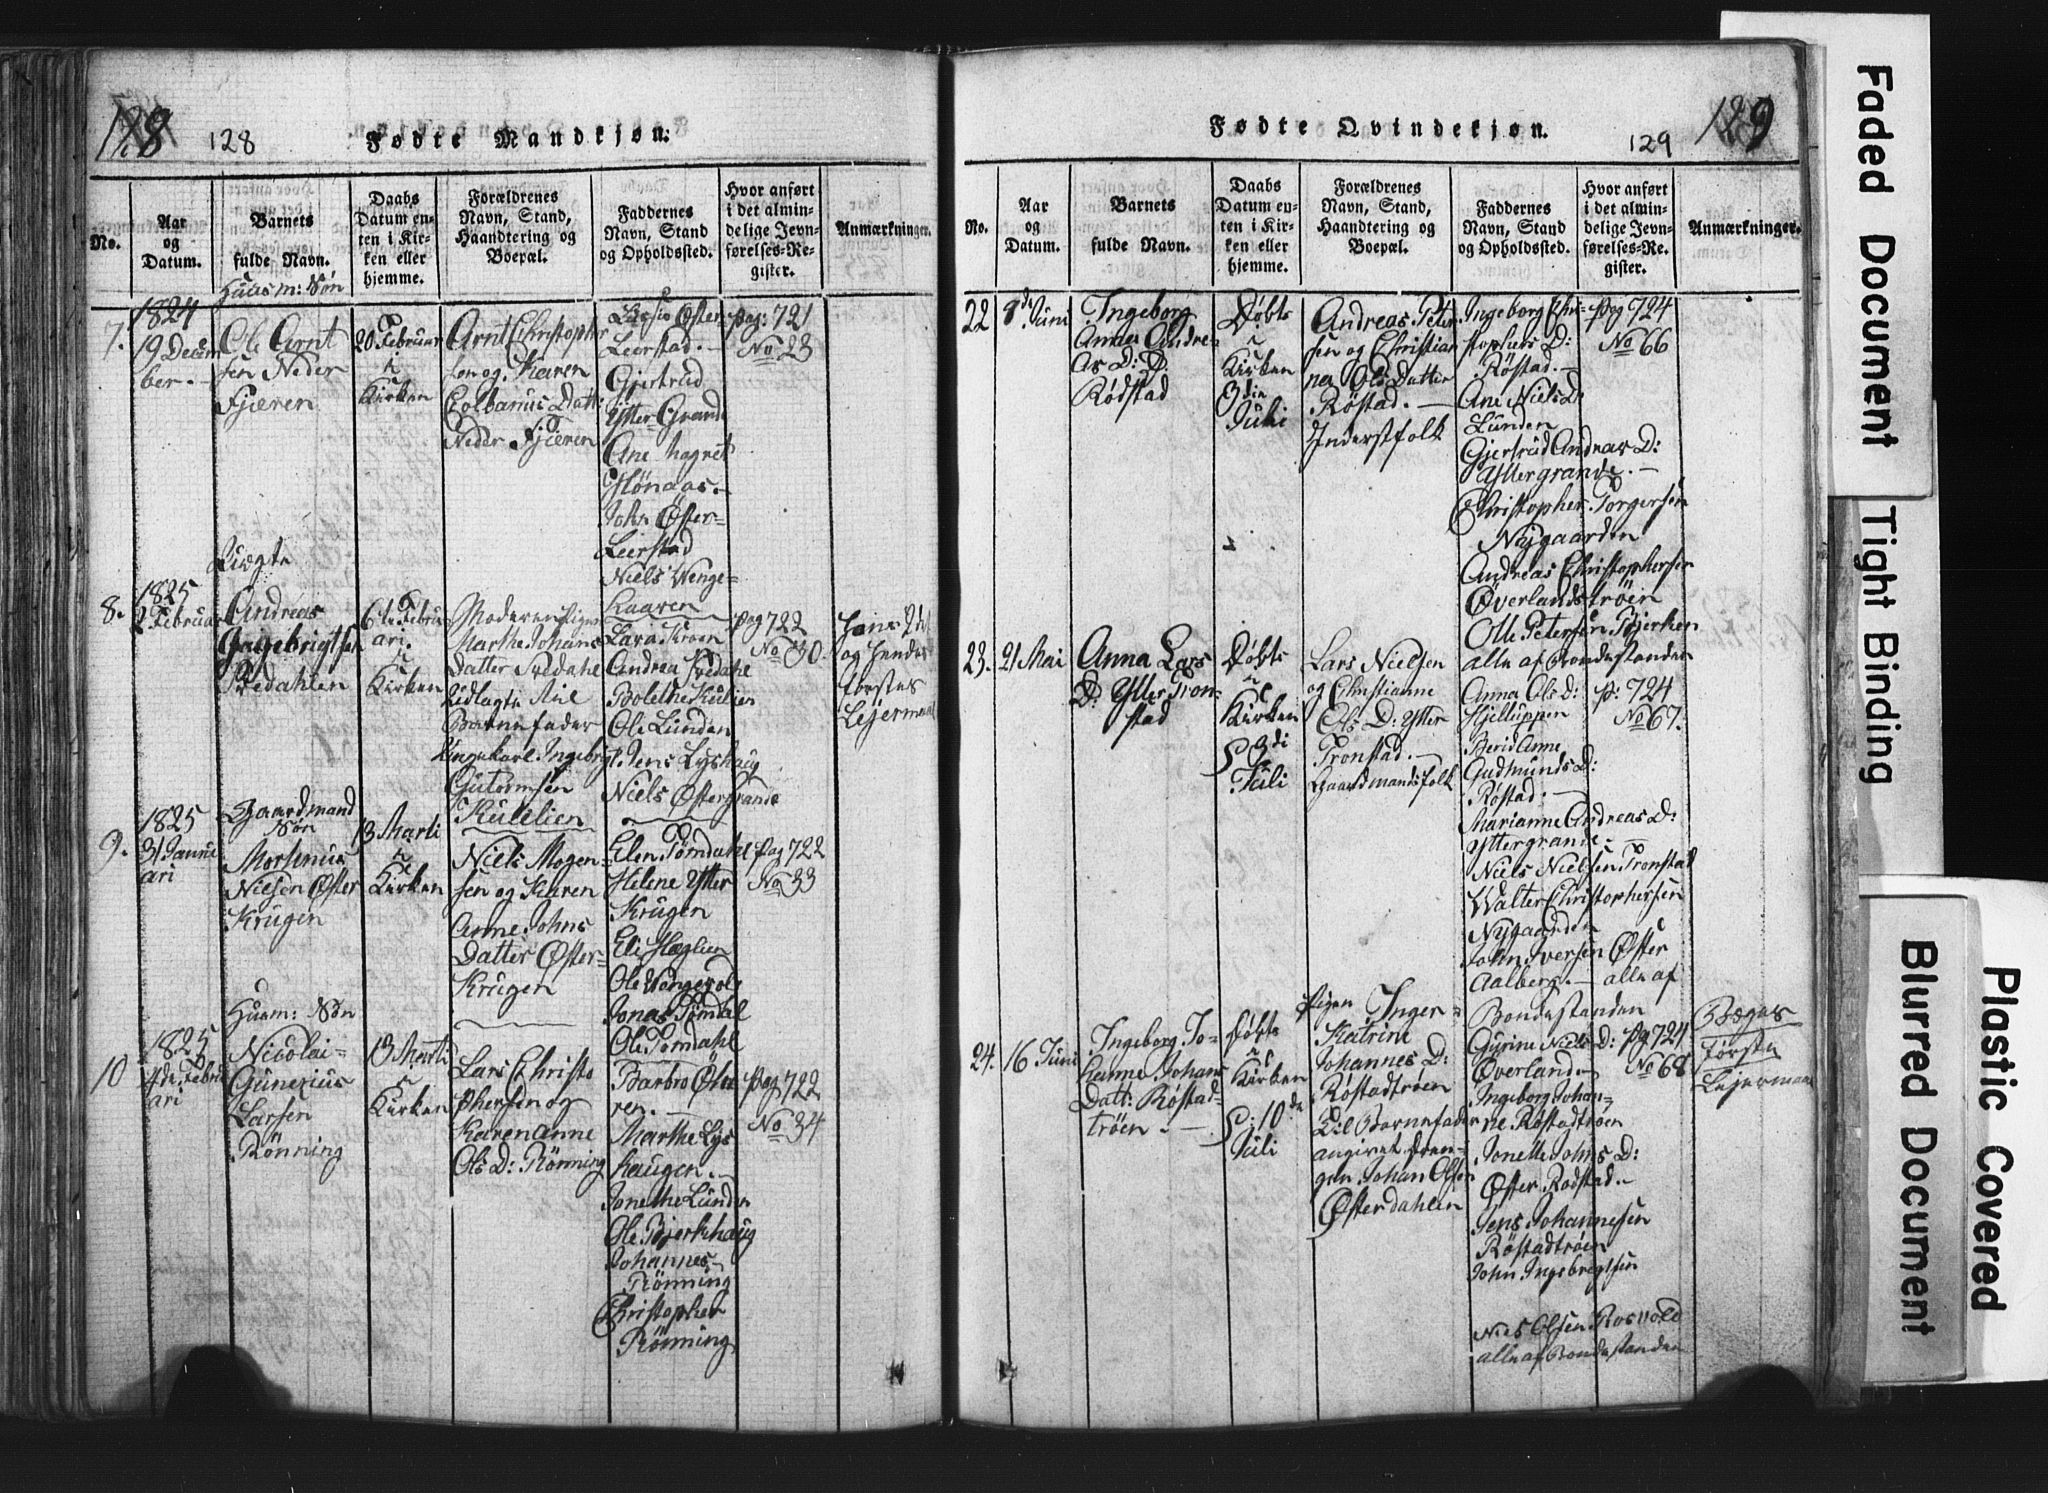 128
128
Fødte Mandkjøn.
No.
Aar
og
Datum.
Barnets
fulde Navn.
Daabs
Datum en-
ten i Kir-
ken eller
hjemme.
Forældrenes
Navn, Stand,
Haandtering og
Boepæl.
Faddernes
Navn, Stand
og Opholdssted.
Hvor anført
i det almin-
delige Jevn-
førelses-Re-
gister.
Anmærkninger.
7.
1824
19 Decem
ber.
Huusm: Søn
Ole Arnt
sen Neder
Fjæren
20 Februar
i
Kirken
Arnt Christopher
sen og Karen
Colbanus Datt:
Neder Fjæren
Øster
Leerstad.
Gjertrud
Ytter Grande
Ane Magret
John Øster-
Leerstad
Niels Wenge-
pag: 721
No 23
8.
1825
2 Februar
Uægte
Andreas
Ingebrigtsen
6te Febru
ari.
i
Kirken
Moderen Pigen
Marthe Johans
Datter
Udlagte til
Barnefader
Ungekarl Ingebrigt
Gutormsen
Kulslien
Andrea
Bolethe Kulslien
Ole Lunden
Jens Lyshaug
Niels Østergrande
pag 722
No 30.
Hans 2det
og hendes
første
Leiermaal
9.
1825
31 Janu
ari
Gaardmand
Søn
Morthinus
Nielsen Øster
Krugen
13 Marti
i
Kirken
Niels Mogen-
sen og Karen
Anne Johns
Datter Øster-
Krugen
Elen Tømdahl
Helene Ytter
Krugen
Eli Hæglien
Ole Wangevold
Jonas Tømdal
Ole Tømdahl
pag 722
No 33
10
1825
4de Febru
ari
Huusm: Søn
Nicolai-
Gunerius
Larsen
Rönning
13 Marti
i
Kirken
Lars Christo
phersen og
Karen Anne
Ols D: Rönning
Barbro
ren.
Marthe Lys
haugen.
Jonethe Lunden
Ole Bjerkhaug
Johannes
Rönning
Christopher
Rönning
pag 722
No 34
Fødte Qvindekjøn.
129
129
No.
Aar
og
Datum.
Barnets
fulde Navn.
Daabs
Datum en-
ten i Kir-
ken eller
hjemme.
Forældrenes
Navn, Stand,
Haandtering og
Boepæl.
Faddernes
Navn, Stand
og Opholdssted.
Hvor anført
i det almin-
delige Jevn-
førelses-Re-
gister.
Anmærkninger.
22
8de Juni
Ingeborg
Anna Andre-
as D:
Rödstad
Døbt
i
Kirken
3die
Juli
Andreas Peter
sen og Christian
na Ols Datter
Röstad.
Inderstfolk
Ingeborg Chri-
stophers D:
Röstad.
Ane Niels D
Lunden
Gjertrud Andreas D:
Yttergrande.
Christopher Torgersen
Nygaarden
Andreas Christophersen
Överlandströen
Olle Petersen Bjerken
alle af Bondestanden
pag 724
No 66
23.
21 Mai
Anna Lars
D: Ytter Tron-
stad
Døbt
i
Kirken
3di
Juli
Lars Nielsen
og Christianne
Ols D: Ytter
Tronstad.
Gaardmandsfolk
Anna Ols D:
Hjelluppen
Berid Anne
Gudmunds D:
Röstad.
Marianne Andreas D:
Yttergrande
Niels Nielsen Tronstad
Walter Christophersen
Nygaarden
John Iversen Øster
Aalberg. alle af
Bondestanden
p: 724
No 67.
24.
16 Juni
Ingeborg Jo-
hanne Johans
Datt: Röstad-
tröen.
Døbt
i
Kirken
10de
Juli
Pigen Inger-
Katrine
Johannes D:
Röstadtröen
til Barnefader
angivet Dren-
gen Johan Olsen
Østerdahlen
Gurine Niels D:
Överland.
Ingeborg Johan-
ne Röstadtröen
Jonette Johns D:
Øster Rodstad.
Jens Johannesen
Röstadtröen
John Ingebregtsen
Niels Olsen Rosvold
alle af Bondestanden
pg 724
No 68
Begges
første
Leiermaal
Faded Document
Tight Binding
Blurred Document
Plastic Covered